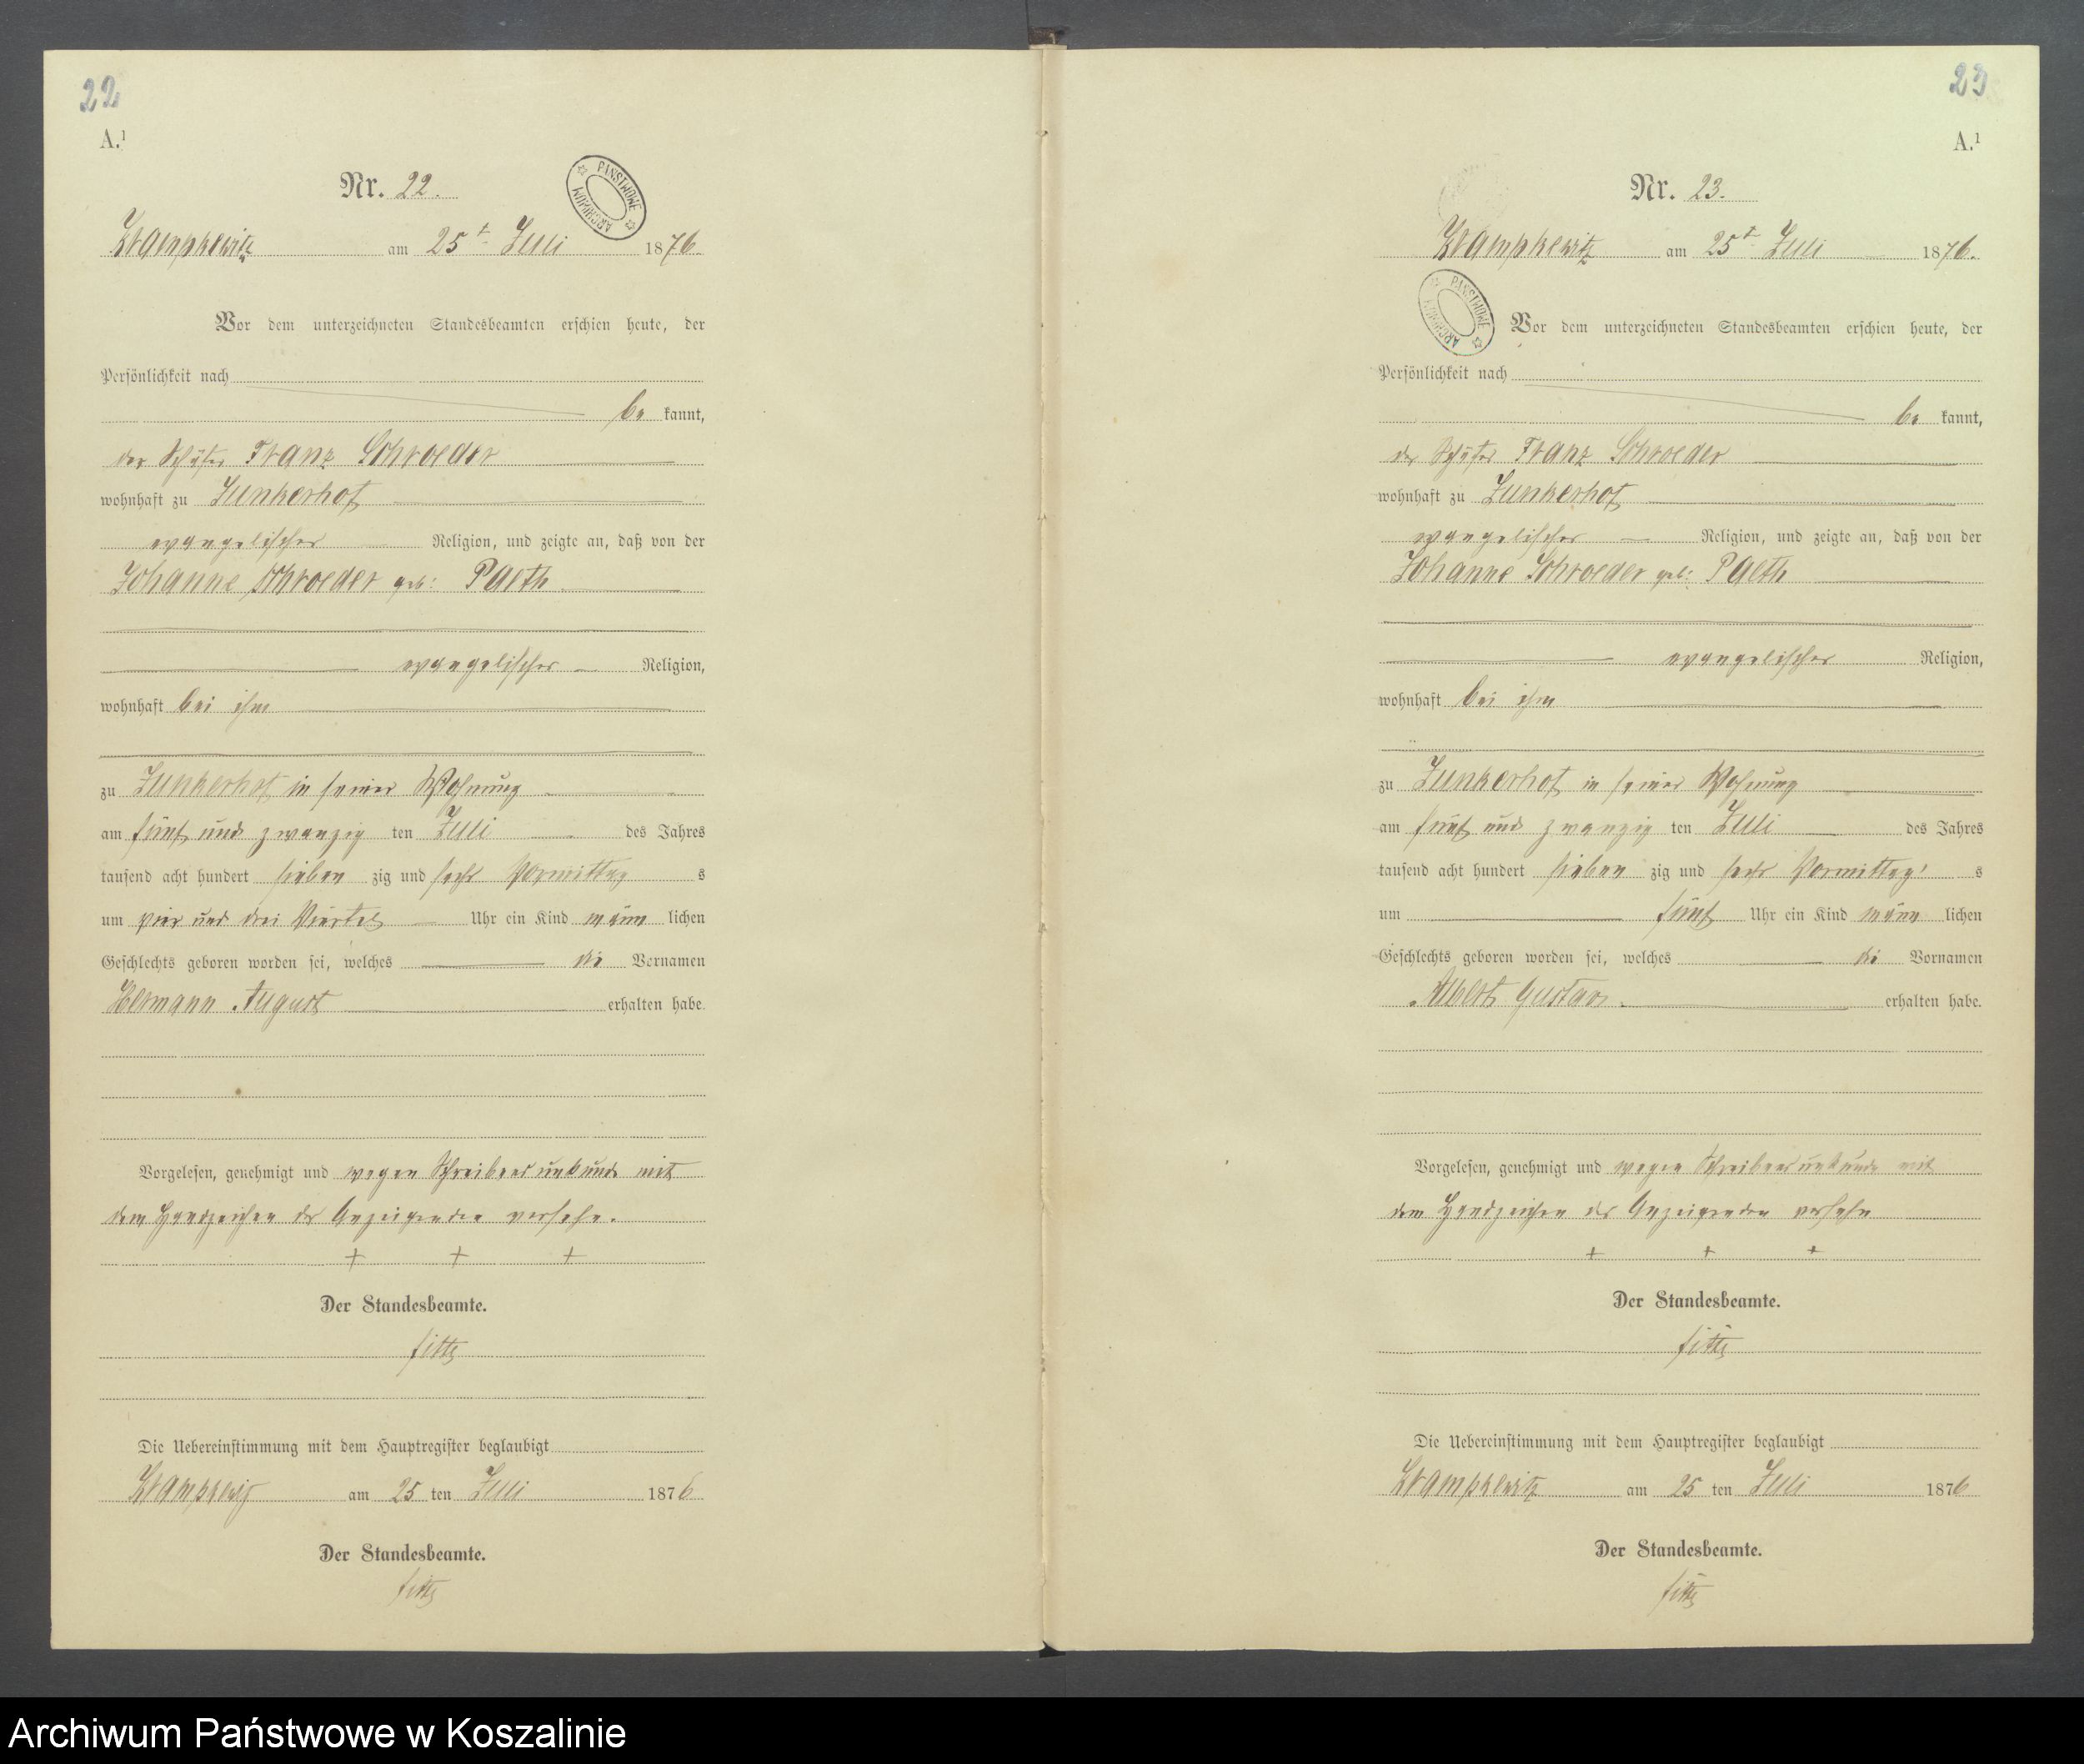 22
A.¹
Nr. 22.
PAŃSTWOWE ARCHIWUM
Krampkewitz am 25t. Juli 1876.
Vor dem unterzeichneten Standesbeamten erschien heute, der
Persönlichkeit nach
be kannt,
der Schäfer Franz Schroeder
wohnhaft zu Junkerhof
evangelischer Religion, und zeigte an, daß von der
Johanne Schroeder geb: Paeth
evangelischer Religion,
wohnhaft bei ihm
zu Junkerhof in seiner Wohnung
am fünf und zwanzig ten Juli des Jahres
tausend acht hundert sieben zig und sechs Vormittag s
um vier und drei Viertel Uhr ein Kind männ lichen
Geschlechts geboren worden sei, welches die Vornamen
Hermann August erhalten habe.
Vorgelesen, genehmigt und wegen Schreibensunkunde mit
dem Handzeichen des Anzeigenden versehn.
+ + +
Der Standesbeamte.
Die Uebereinstimmung mit dem Hauptregister beglaubigt
Krampkewitz am 25 ten Juli 1876
Der Standesbeamte.
23
A.¹
Nr. 23.
Krampkewitz am 25t. Juli 1876.
PAŃSTWOWE ARCHIWUM
Vor dem unterzeichneten Standesbeamten erschien heute, der
Persönlichkeit nach
be kannt,
der Schäfer Franz Schroeder
wohnhaft zu Junkerhof
evangelischer Religion, und zeigte an, daß von der
Johanne Schroeder geb: Paeth
evangelischer Religion,
wohnhaft bei ihm
zu Junkerhof in seiner Wohnung
am fünf und zwanzig ten Juli des Jahres
tausend acht hundert sieben zig und sechs Vormittag s
um fünf Uhr ein Kind männ lichen
Geschlechts geboren worden sei, welches die Vornamen
Albert Gustav erhalten habe.
Vorgelesen, genehmigt und wegen Schreibensunkunde mit
dem Handzeichen des Anzeigenden versehn
+ + +
Der Standesbeamte.
Die Uebereinstimmung mit dem Hauptregister beglaubigt
Krampkewitz am 25 ten Juli 1876
Der Standesbeamte.
Archiwum Państwowe w Koszalinie